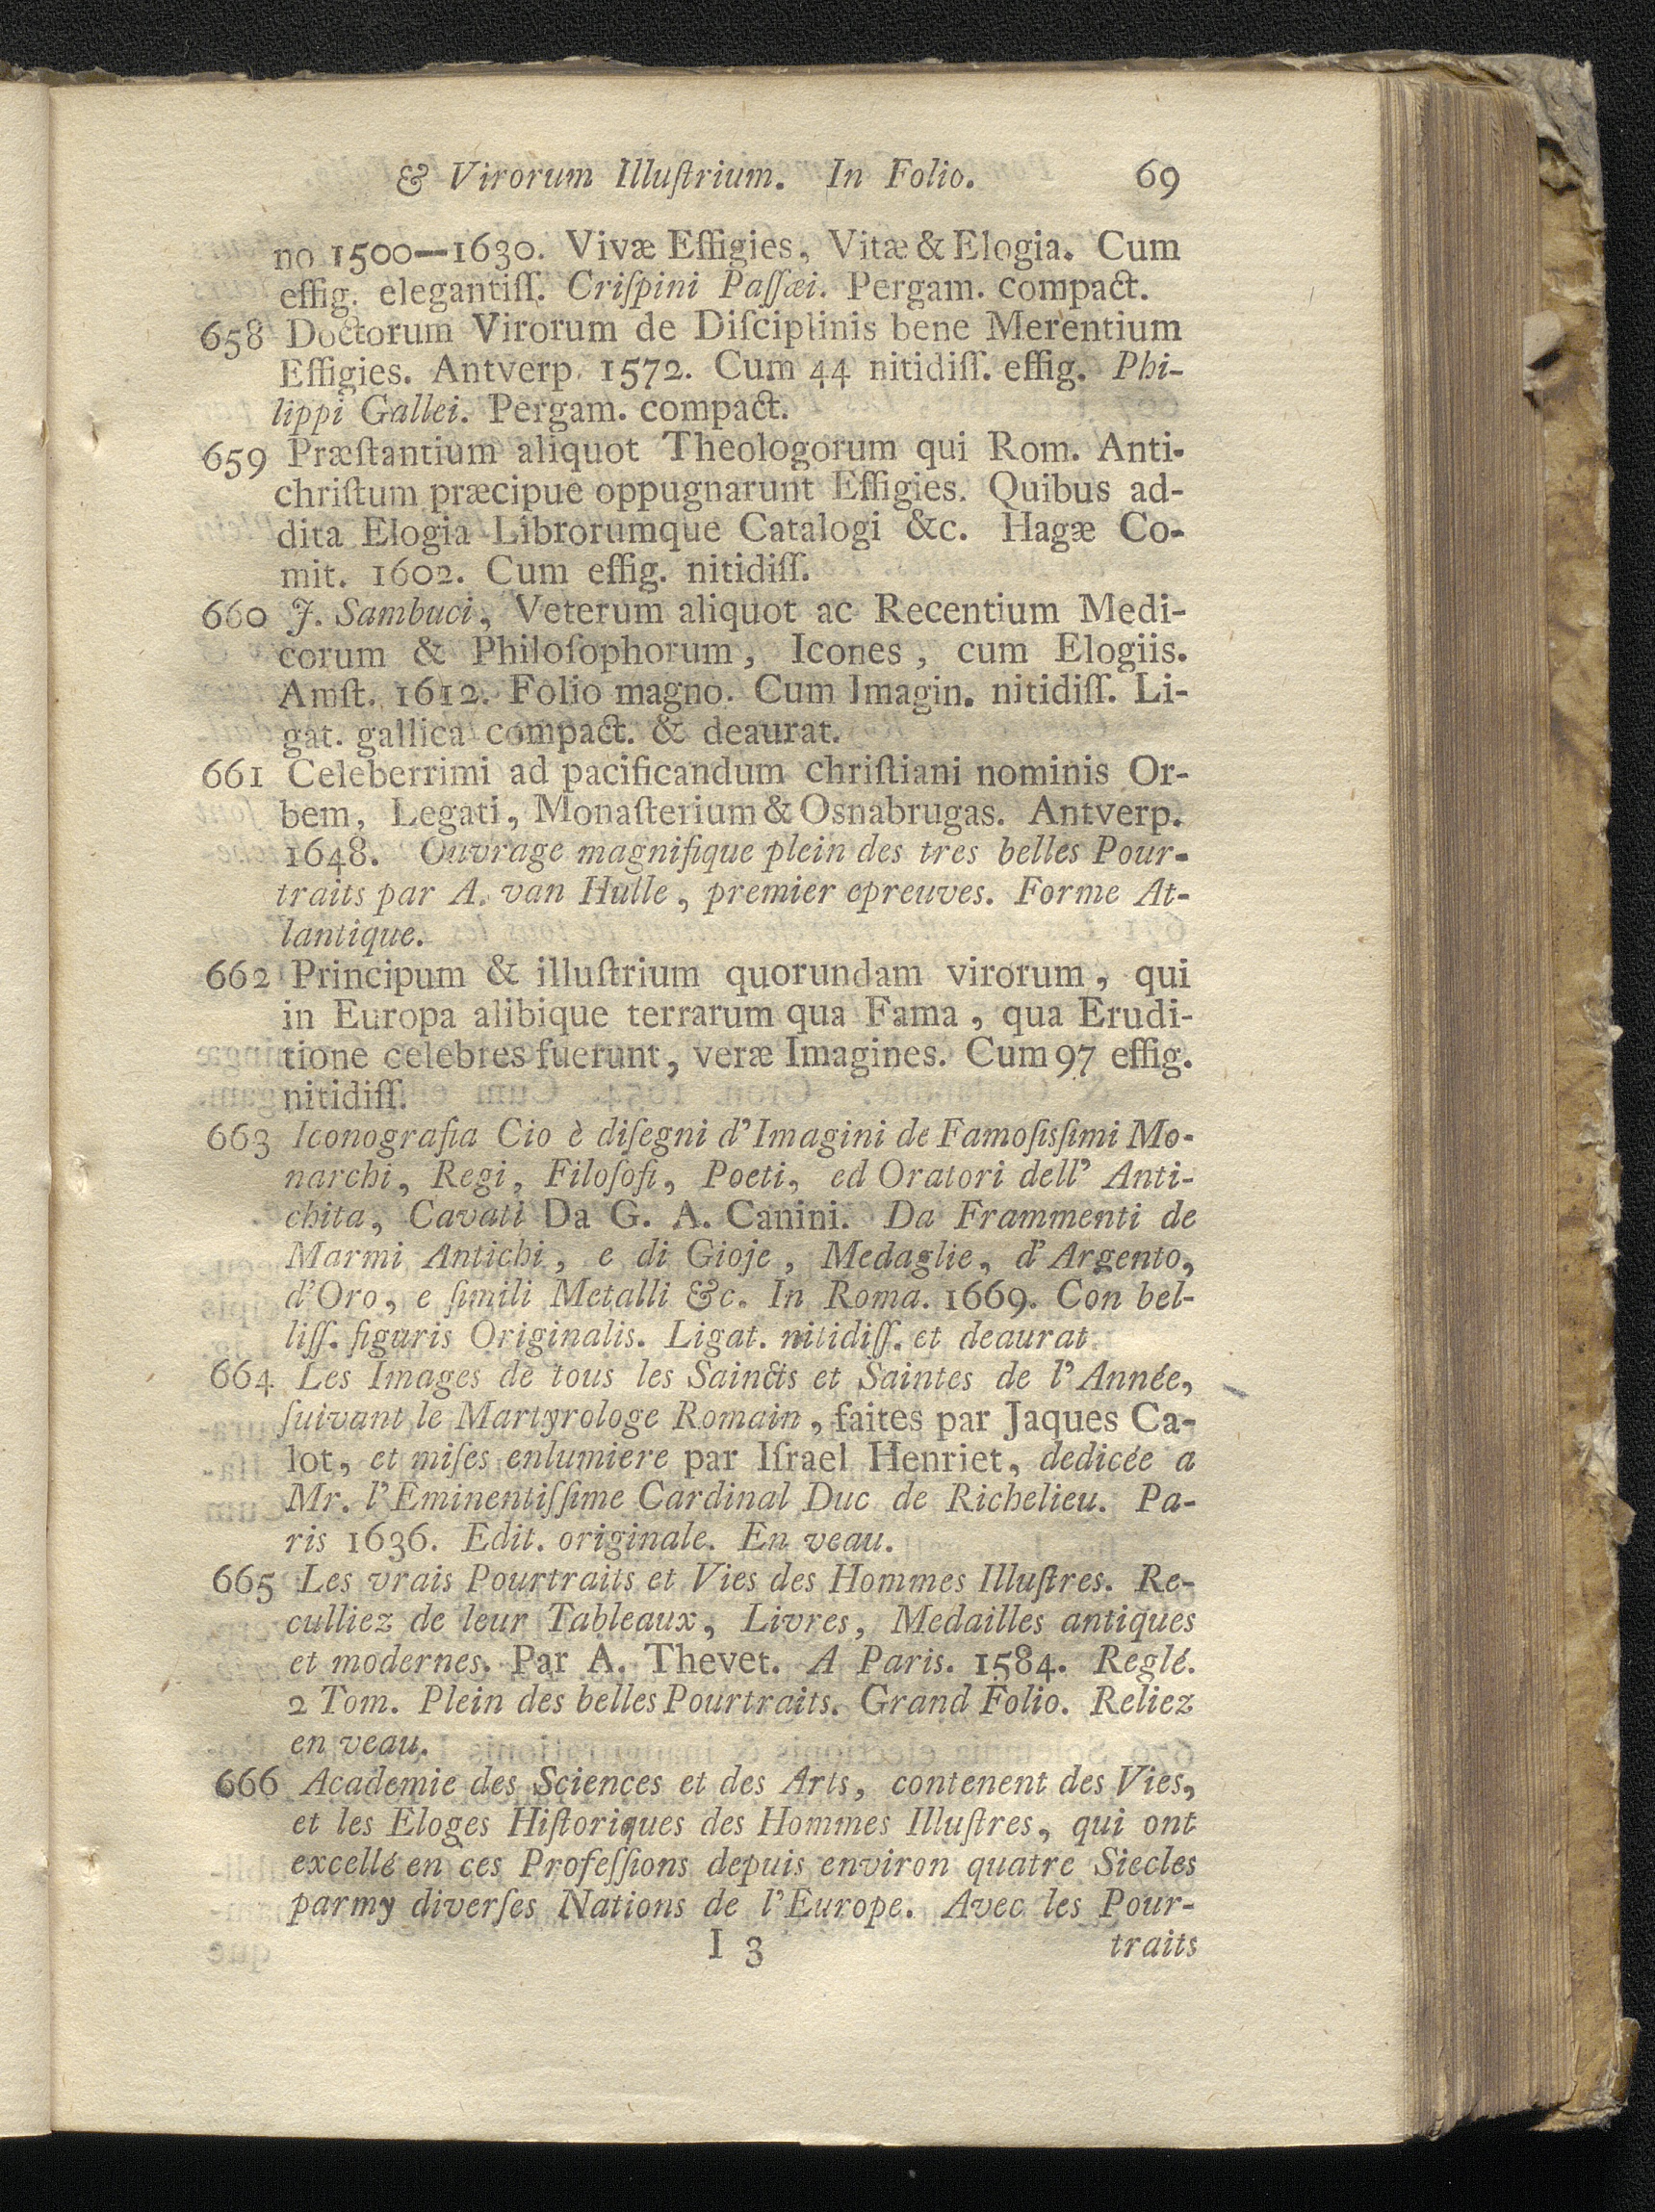 & Virorum Illuſtrium. In Folio. 69
no 1500—1630. Vivæ Effigies, Vitæ & Elogia. Cum
effig. elegantiſſ. Criſpini Paſſæi. Pergam. compact.
658 Doctorum Virorum de Diſciplinis bene Merentium
Effigies. Antverp. 1572. Cum 44 nitidiſſ. effig. Phi-
lippi Gallei. Pergam. compact.
659 Præſtantium aliquot Theologorum qui Rom. Anti-
chriſtum præcipue oppugnarunt Effigies. Quibus ad-
dita Elogia Librorumque Catalogi &c. Hagæ Co-
mit. 1602. Cum effig. nitidiſſ.
660 J. Sambuci, Veterum aliquot ac Recentium Medi-
corum & Philoſophorum, Icones, cum Elogiis.
Amſt. 1612. Folio magno. Cum Imagin. nitidiſſ. Li-
gat. gallica compact. & deaurat.
661 Celeberrimi ad pacificandum chriſtiani nominis Or-
bem, Legati, Monaſterium & Osnabrugas. Antverp.
1648. Ouvrage magnifique plein des tres belles Pour-
traits par A. van Hulle, premier epreuves. Forme At-
lantique.
662 Principum & illuſtrium quorundam virorum, qui
in Europa alibique terrarum qua Fama, qua Erudi-
tione celebres fuerunt, veræ Imagines. Cum 97 effig.
nitidiſſ.
663 Iconografia Cio è diſegni d'Imagini de Famoſisſimi Mo-
narchi, Regi, Filoſofi, Poeti, ed Oratori dell' Anti-
chita, Cavati Da G. A. Canini. Da Frammenti de
Marmi Antichi, e di Gioje, Medaglie, d'Argento,
d'Oro, e ſimili Metalli &c. In Roma. 1669. Con bel-
liſſ. figuris Originalis. Ligat. nitidiſſ. et deaurat.
664 Les Images de tous les Saincts et Saintes de l'Année,
ſuivant le Martyrologe Romain, faites par Jaques Ca-
lot, et miſes enlumiere par Iſrael Henriet, dedicée a
Mr. l'Eminentiſſime Cardinal Duc de Richelieu. Pa-
ris 1636. Edit. originale. En veau.
665 Les vrais Pourtraits et Vies des Hommes Illuſtres. Re-
culliez de leur Tableaux, Livres, Medailles antiques
et modernes. Par A. Thevet. A Paris. 1584. Reglé.
2 Tom. Plein des belles Pourtraits. Grand Folio. Reliez
en veau.
666 Academie des Sciences et des Arts, contenent des Vies,
et les Eloges Hiſtoriques des Hommes Illuſtres, qui ont
excellé en ces Profeſſions depuis environ quatre Siecles
parmy diverſes Nations de l'Europe. Avec les Pour-
I 3 traits